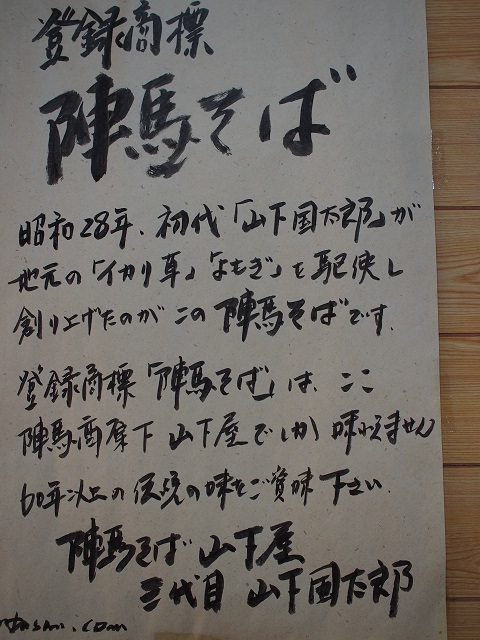 登録商標
陣馬そば
昭和28年、初代「山下国太郎」が
地元の「イカリ草」「よもぎ」を駆使し
創り上げたのがこの陣馬そばです。
登録商標「陣馬そば」は、ここ
陣馬高原下 山下屋でしか味わえません
60年以上の伝統の味をご賞味下さい
陣馬そば 山下屋
三代目 山下国太郎